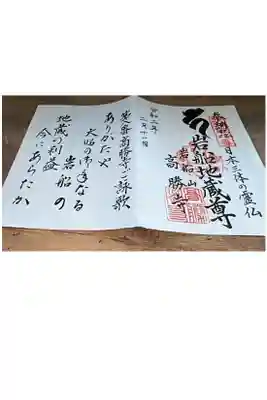 日本三体の霊仏
岩船地蔵尊
岩船山
高勝寺
令和二年
二月十一日
岩船山高勝寺ご詠歌
ありがたや
大師の御手なる
岩船の
地蔵の利益
今にあらたか